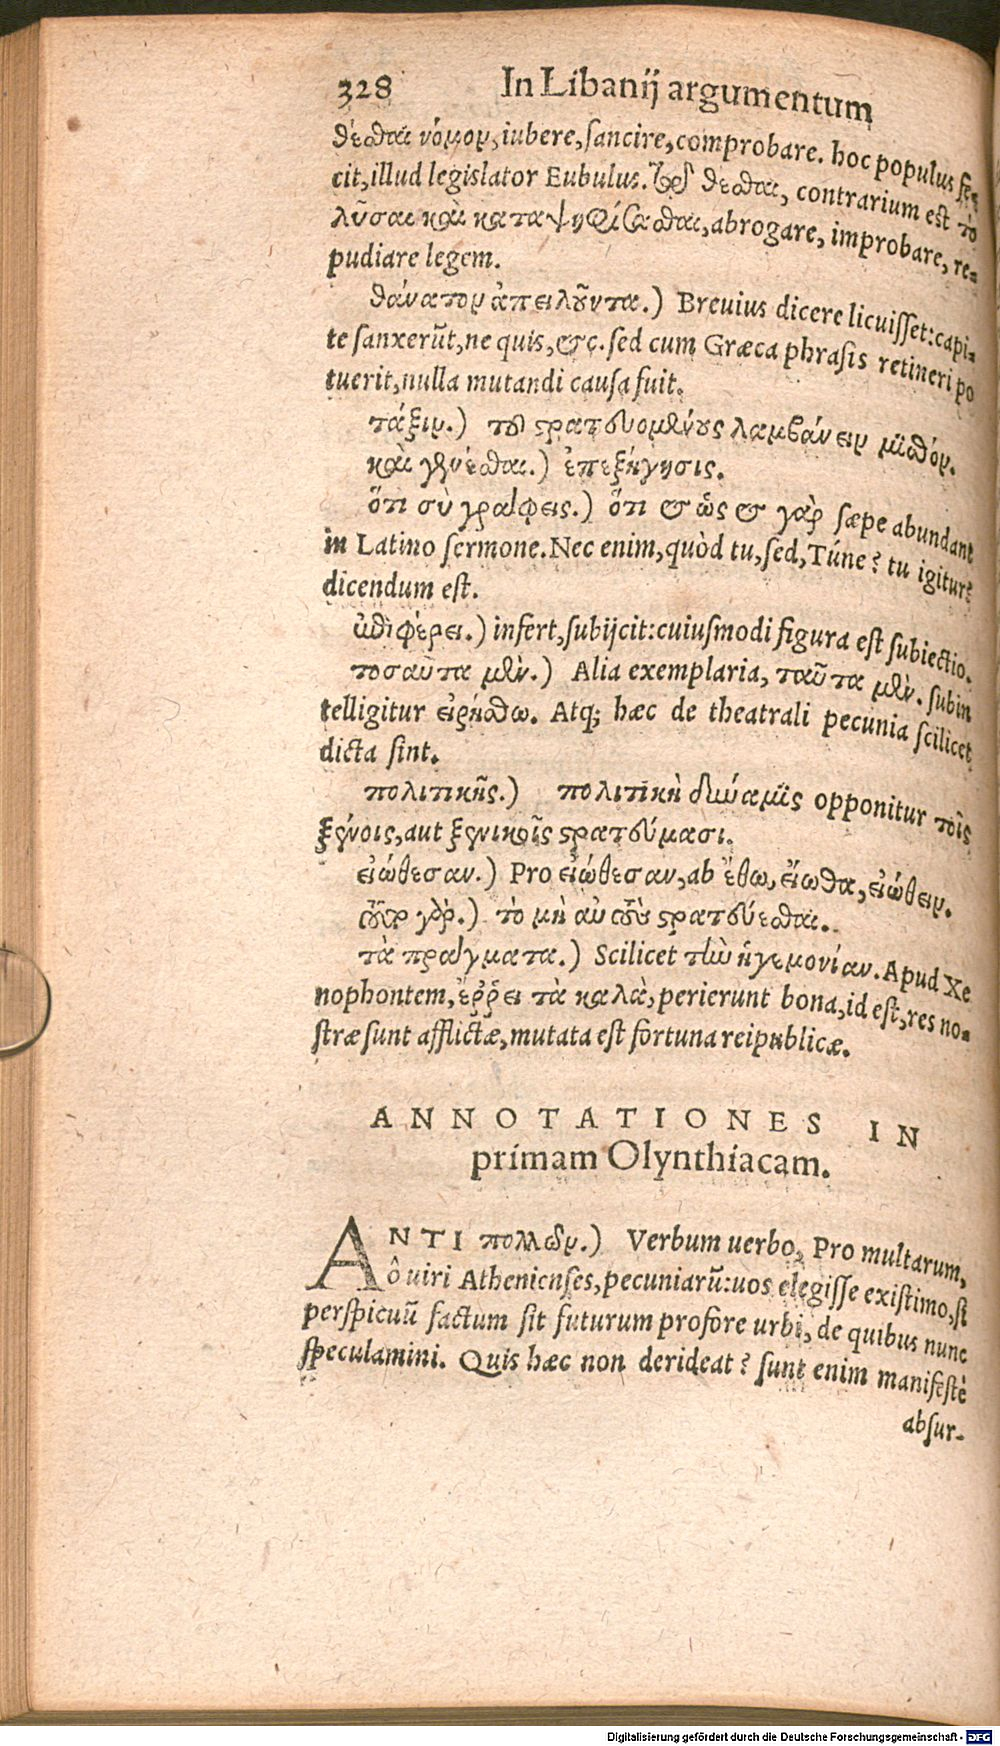 328 In Libanij argumentum
θέσθαι νόμον, iubere, sancire, comprobare. hoc populus fe-
cit, illud legislator Eubulus. θέσθαι, contrarium est τὸ
λῦσαι καὶ καταψηφίσασθαι, abrogare, improbare, re-
pudiare legem.
θάνατον ἀπειλοῦντα.) Breuius dicere licuisset: capi-
te sanxerũt, ne quis, &c. sed cum Græca phrasis retineri po
tuerit, nulla mutandi causa fuit.
τάξιν.) τοῦ στρατευομένους λαμβάνειν μισθόν.
καὶ γενέσθαι.) ἐπεξήγησις.
ὅτι σὺ γράφεις.) ὅτι & ὡς & γὰρ sæpe abundant
in Latino sermone. Nec enim, quòd tu, sed, Túne? tu igitur?
dicendum est.
ἐπιφέρει.) infert, subijcit: cuiusmodi figura est subiectio.
τοσαῦτα μὲν.) Alia exemplaria, ταῦτα μὲν. subin
telligitur εἰρήσθω. Atq; hæc de theatrali pecunia scilicet
dicta sint.
πολιτικῆς.) πολιτικὴ δύναμις opponitur τοῖς
ξένοις, aut ξενικοῖς στρατεύμασι.
εἰώθεσαν.) Pro εἰώθεσαν, ab ἔθω, εἴωθα, εἰώθειν.
γὰρ.) τὸ μὴ αὐτοὺς στρατεύεσθαι.
τὰ πράγματα.) Scilicet τὴν ἡγεμονίαν. Apud Xe
nophontem, ἔρρει τὰ καλὰ, perierunt bona, id est, res no-
stræ sunt afflictæ, mutata est fortuna reipublicæ.
ANNOTATIONES IN
primam Olynthiacam.
ANTI πολλῶν.) Verbum uerbo, Pro multarum,
ô uiri Athenienses, pecuniarũ: uos elegisse existimo, si
perspicuũ factum sit futurum profore urbi, de quibus nunc
speculamini. Quis hæc non derideat? sunt enim manifestè
absur-
Digitalisierung gefördert durch die Deutsche Forschungsgemeinschaft - DFG